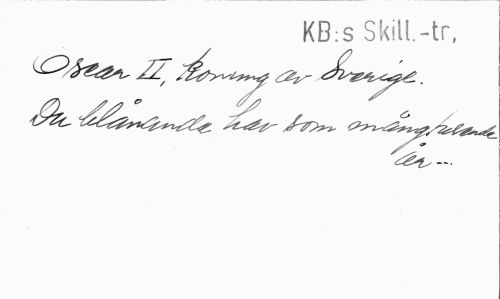 KB:s Skill.-tr,
Oscar II, konung av Sverige.
Du blånande hav som mångtusende
år---